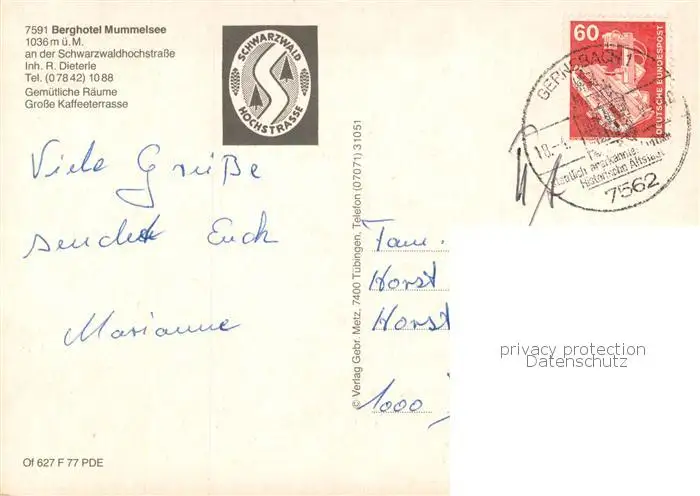 7591 Berghotel Mummelsee
1036 m ü. M.
an der Schwarzwaldhochstraße
Inh. R. Dieterle
Tel. (0 78 42) 10 88
Gemütliche Räume
Große Kaffeeterrasse
SCHWARZWALD
HOCHSTRASSE
60
DEUTSCHE BUNDESPOST
GERNSBACH 1
18.-4.
Staatlich anerkannter Luftkurort
Historische Altstadt
7562
Viele Grüße
sendet Euch
Marianne
© Verlag Gebr. Metz, 7400 Tübingen, Telefon (07071) 31051
Fam.
Horst
Horst
1000
privacy protection
Datenschutz
Of 627 F 77 PDE